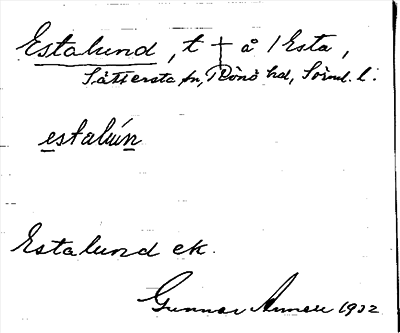 Estalund, t † å 1 Esta,
Sättersta sn, Rönö hd, Södml. l:
estalún
Estalund ek.
Gunnar Annell 1932